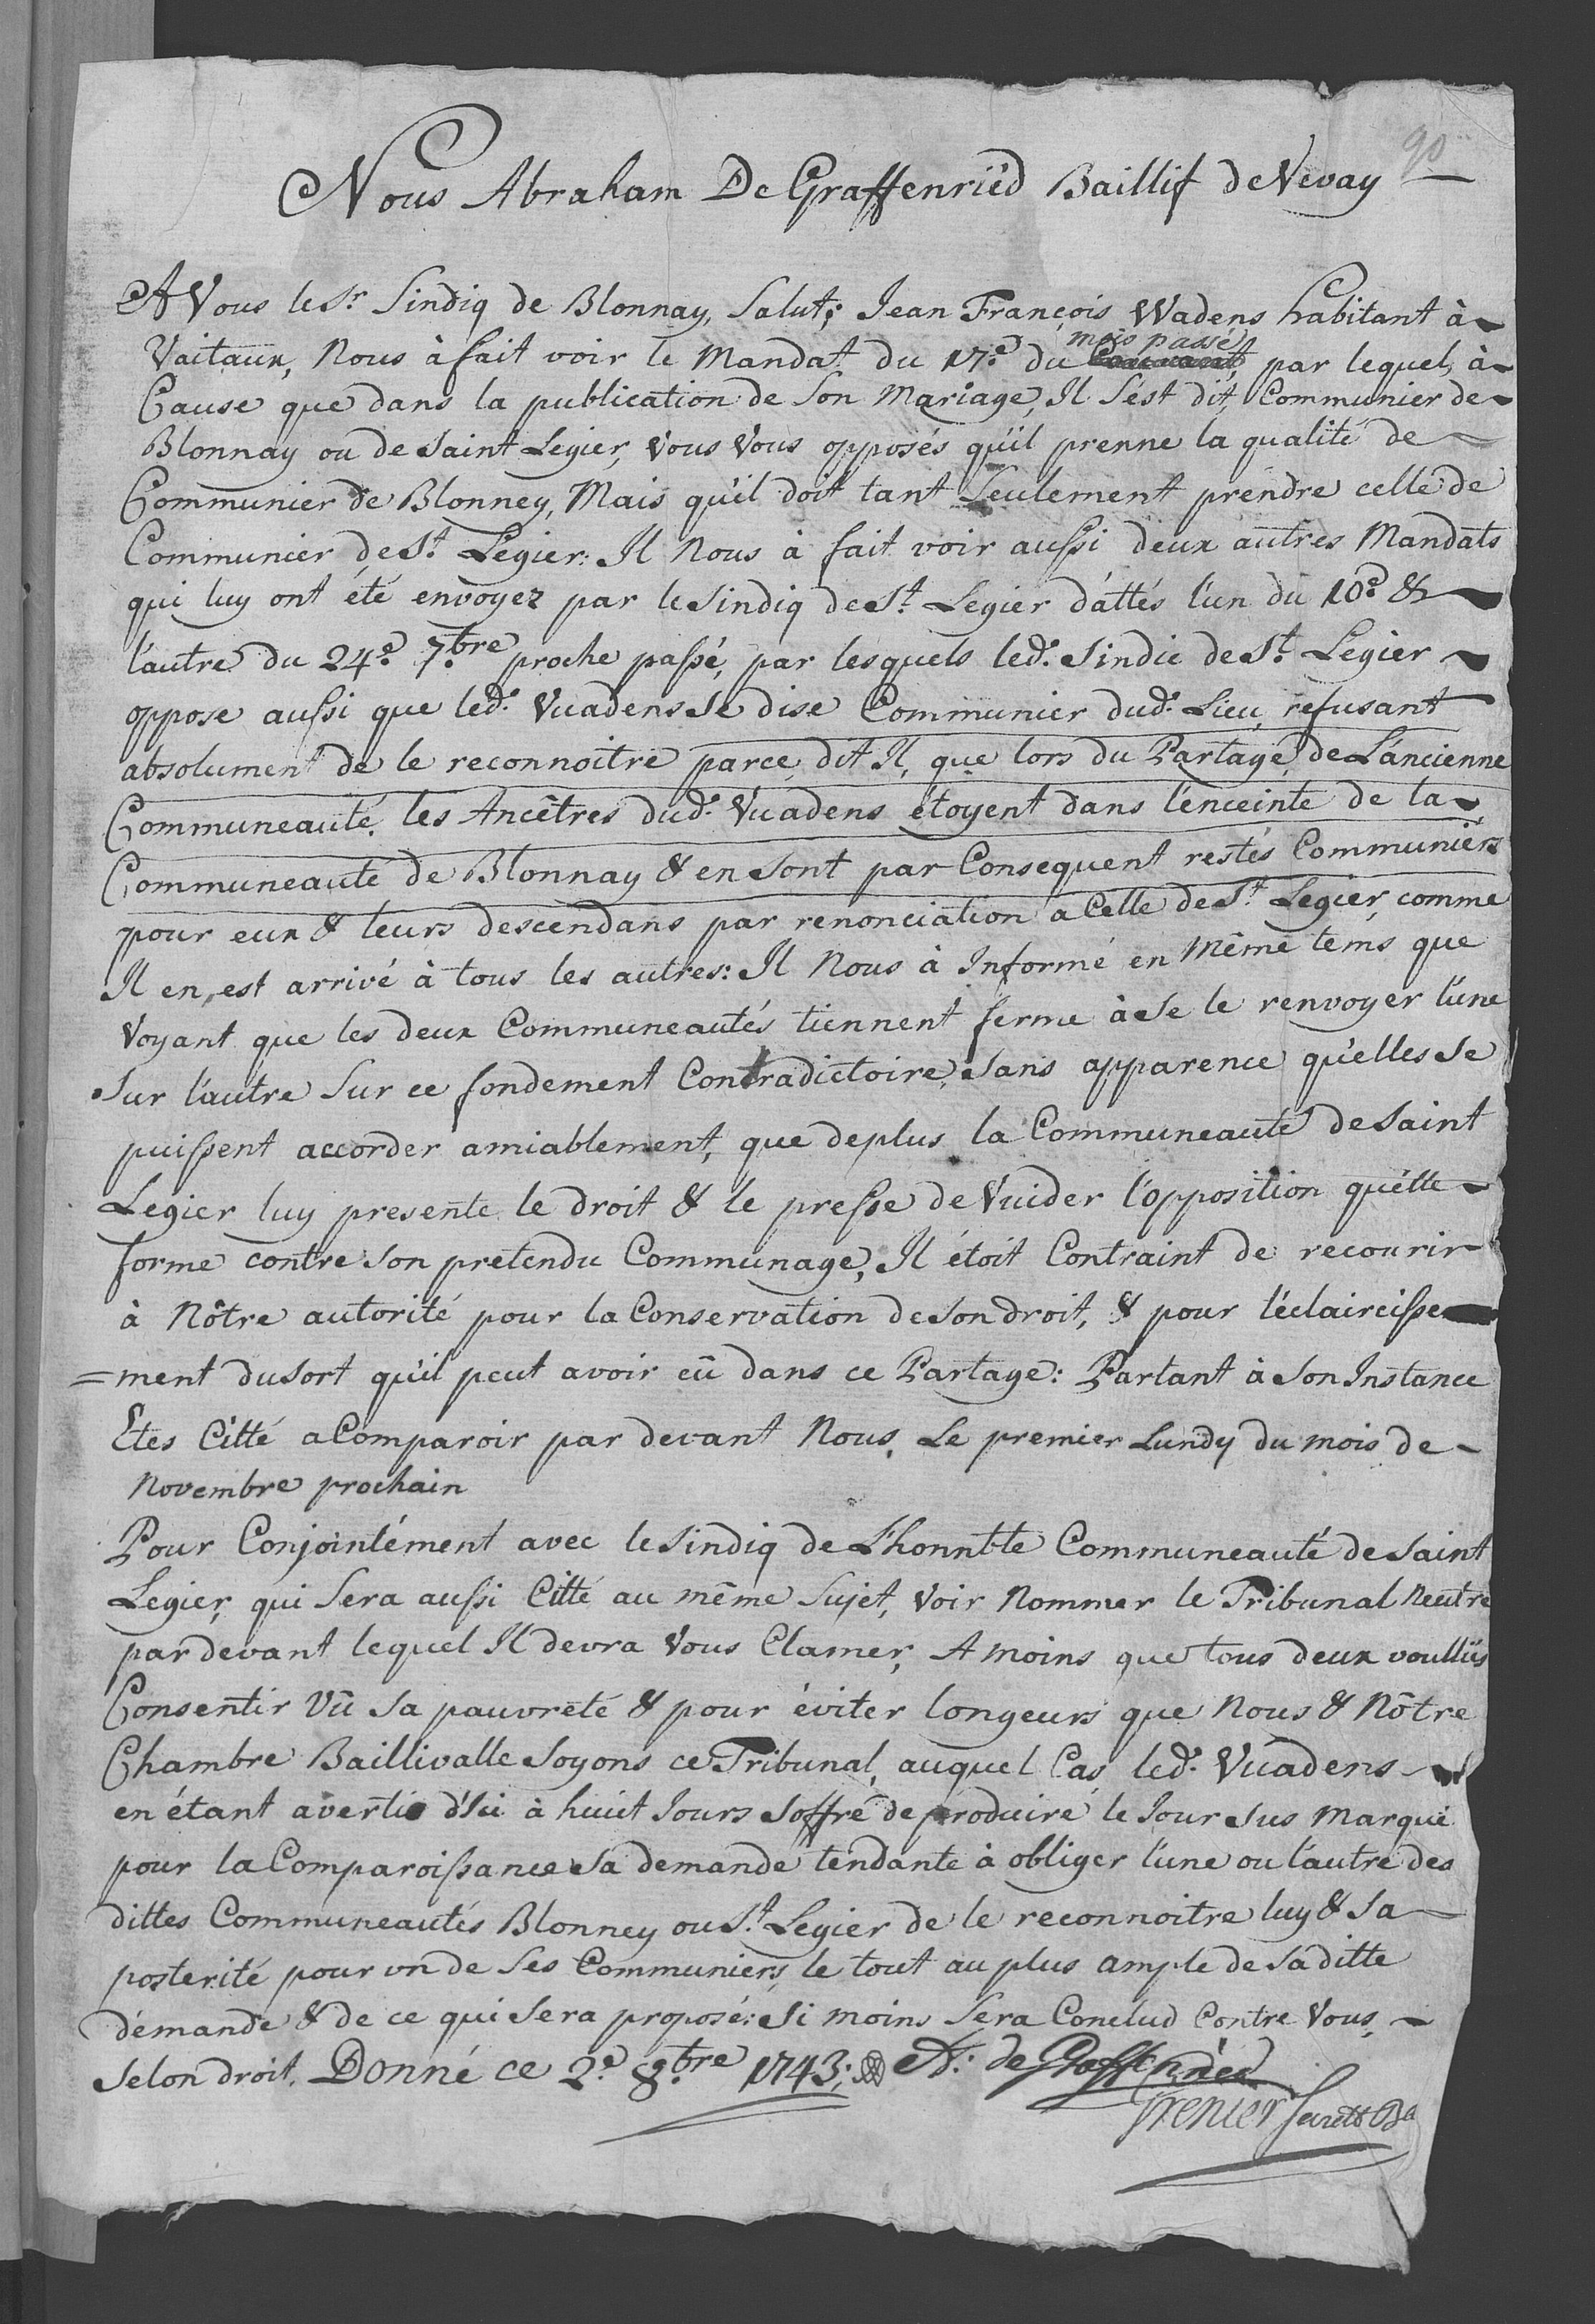 90
Nous Abraham De Graffenriëd Baillif de Vevay
A Vous le Sr. Sindiq de Blonnay, Salut; Jean François Wadens habitant à
mois passé
Vaitaux, Nous à fait voir le Mandat du 17e. du Courrant, par lequel, à
Cause que dans la publication de Son Mariage, Il S'ést dit, Communier de
Blonnay ou de Saint Legier, Vous Vous opposés qu'il prenne la qualité de
Communier de Blonney, Mais qu'il doit tant Seulement prendre celle de
Communier de St. Legier: Il Nous à fait voir aussi deux autres Mandats
qui luy ont été envoyez par le Sindiq de St. Legier dáttés l'un du 10e. &
l'autre du 24e. 7.bre proche passé, par lesquels led. Sindic de St. Légier
oppose aussi que led. Vuadens Se dise Communier dud. Lieu, refusant
absolument de le reconnoitre parce, dit Il, que lors du Partage, de L'ancienne
Communeauté, les Ancêtres dud. Vuadens étoyent dans l'enceinte de la
Communeauté de Blonnay & en Sont par Consequent restés Communiérs
pour eux & leurs descendans par renonciation a Celle de St. Legier, comme
Il en est arrivé à tous les autres: Il Nous à Informé en Même tems que
Voyant que les deux Communeautés tiennent ferme à Se le renvoyer l'une
Sur l'autre Sur ce fondement Contradictoire, Sans apparence qu'elles Se
puissent accorder amiablement, que deplus la Communeauté de Saint
Legier luy presente le droit & le presse de Vuider l'opposition qu'élle
forme contre Son prétendu Communage, Il étoit Contraint de recourir
à Nôtre autorité pour la Conservation de Son droit, & pour l'éclaircisse
=ment du Sort qu'il peut avoir eû dans ce Partage: Partant à Son Instance
Etes Citté a Comparoir par devant Nous, Le premier Lundy du mois de
Novembre prochain
Pour Conjointément avec le Sindiq de L'honnble Communeauté de Saint
Legier, qui Sera aussi Citté au même Sujet, Voir Nommer le Tribunal Neutre
par devant lequel Il devra Vous Clamer, A moins que tous deux voulliés
Consentir Vû Sa pauvreté & pour éviter longeurs que Nous & Nôtre
Chambre Baillivalle Soyons ce Tribunal, auquel Cas, led. Vuadens
en étant averti d'Ici à huict Jours S'offre de produire le Jour Sus Marqué
pour la Comparoissance Sa demande tendante à obliger l'une ou l'autre des
dittes Communeautés Blonney ou St. Legier de le reconnoitre luy & Sa
posterité pour un de Ses Communiers, le tout au plus ample de Saditte
démande & de ce qui Sera proposé: Si moins Sera Conclud Contre Vous
Selon droit. Donné ce 2e. 8.bre 1743; A: de Graffenried
Grenier Secrett Ba